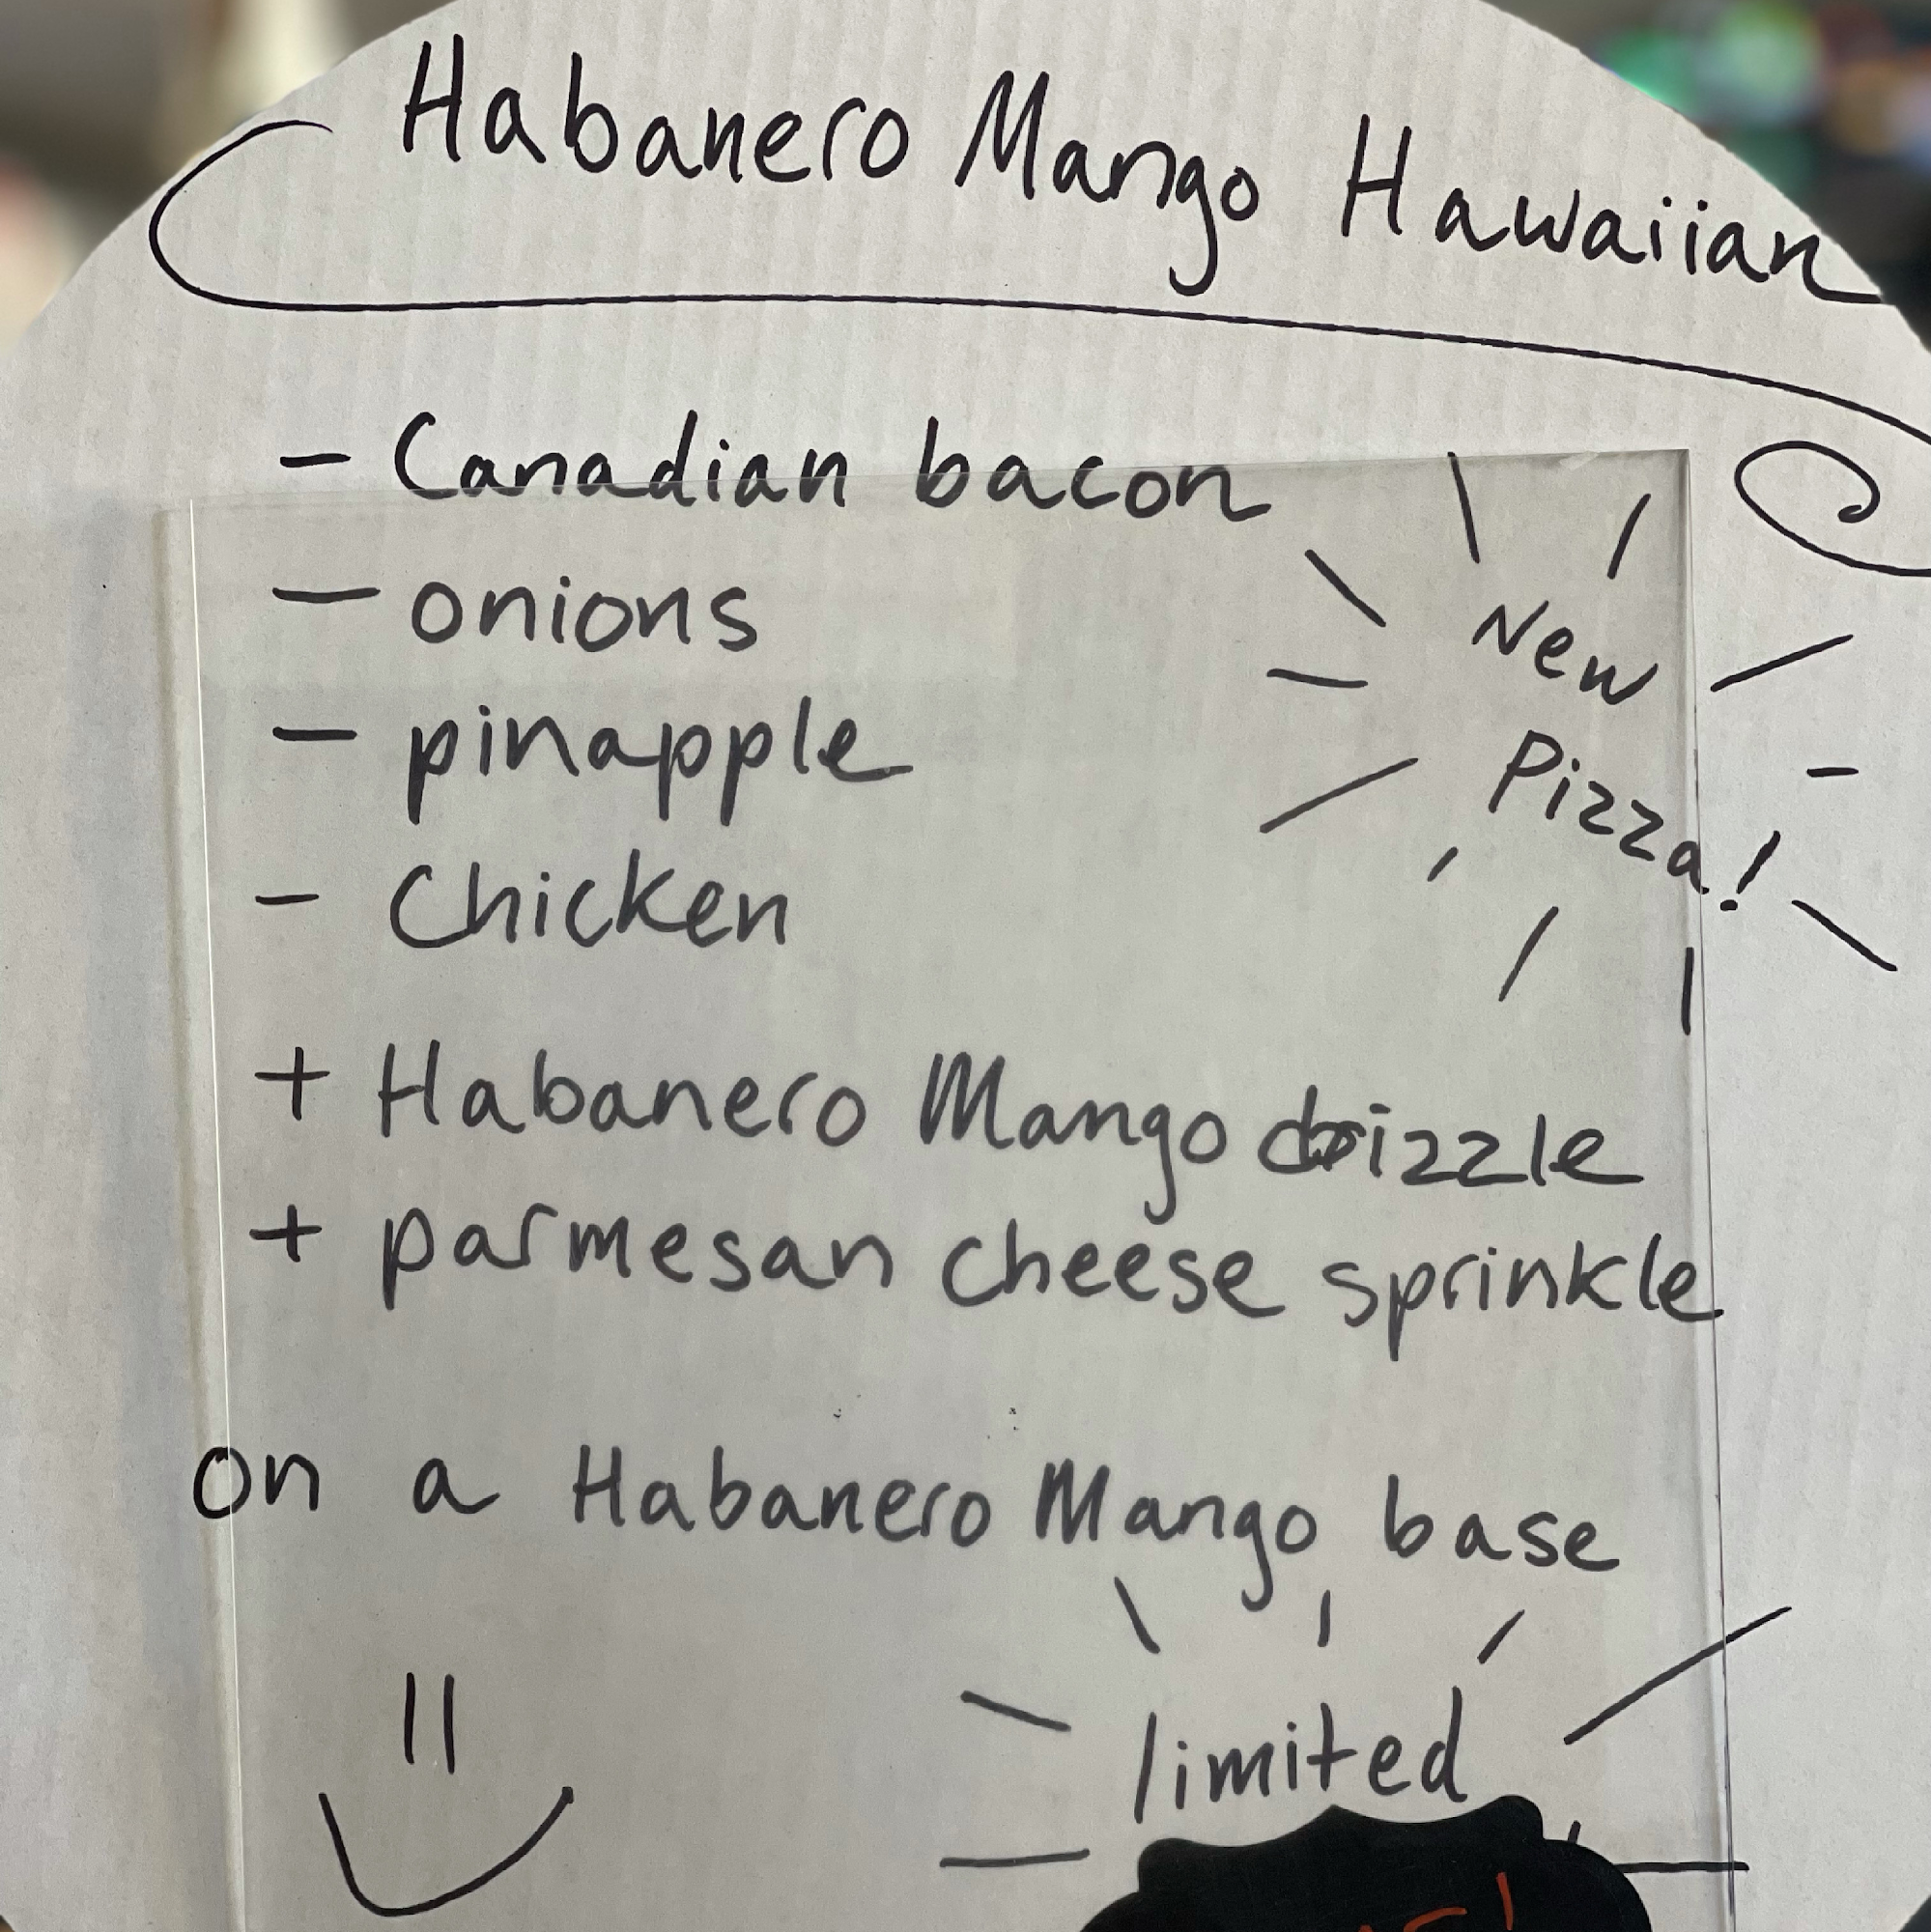 Habanero Mango Hawaiian
- Canadian bacon
- onions
- pinapple
- Chicken
New
Pizza!
+ Habanero Mango drizzle
+ parmesan cheese sprinkle
on a Habanero Mango base
limited